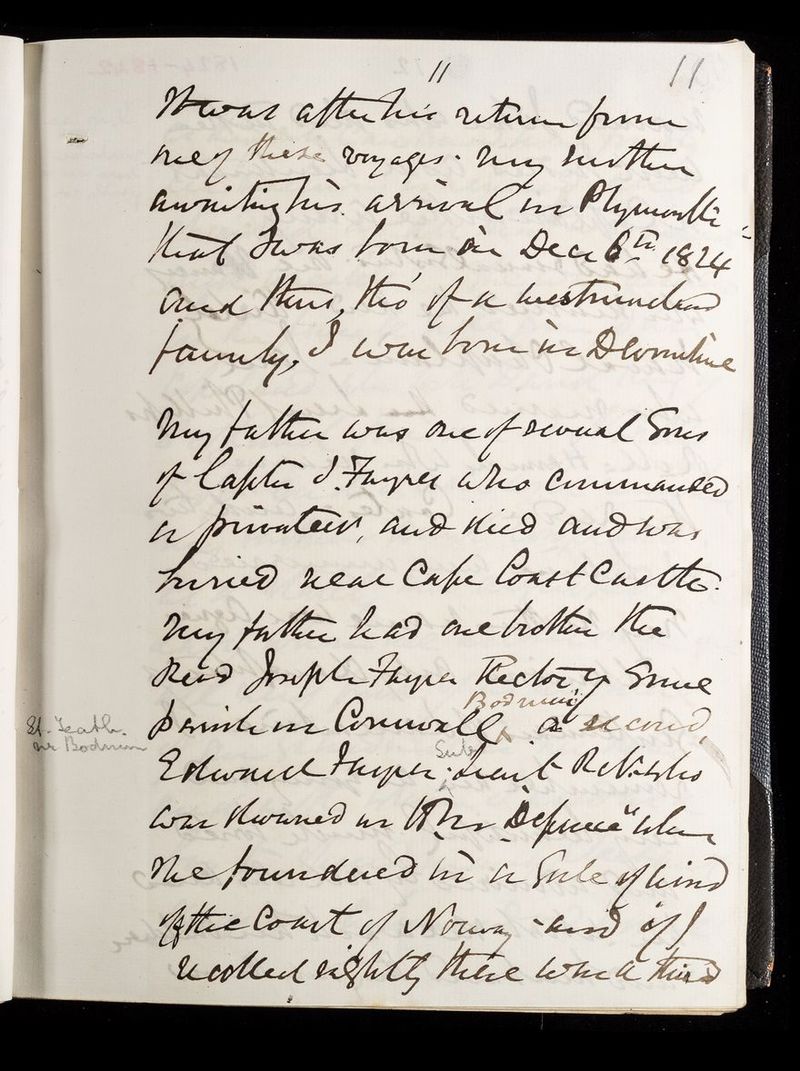 11
11
It was after his return from
one of these voyages - my mother
awaiting his arrival in Plymouth -
that I was born on Decr 6th 1824
and thus, tho' of a Westmorland
family, I was born in Devonshire
My father was one of several Sons
of Captn J. Fayrer who commanded
a privateer, and died and was
buried near Cape Coast Castle.
My father had one brother the
Revd Joseph Fayrer Rector of Some
Bodmin
parish in Cornwall a second,
St. Teath.
nr Bodmin
Edward Fayrer, Lieut R.N. who
was drowned in HMS Defence" when
she foundered in a Gale of wind
off the Coast of Norway - and if I
recollect rightly there was a third